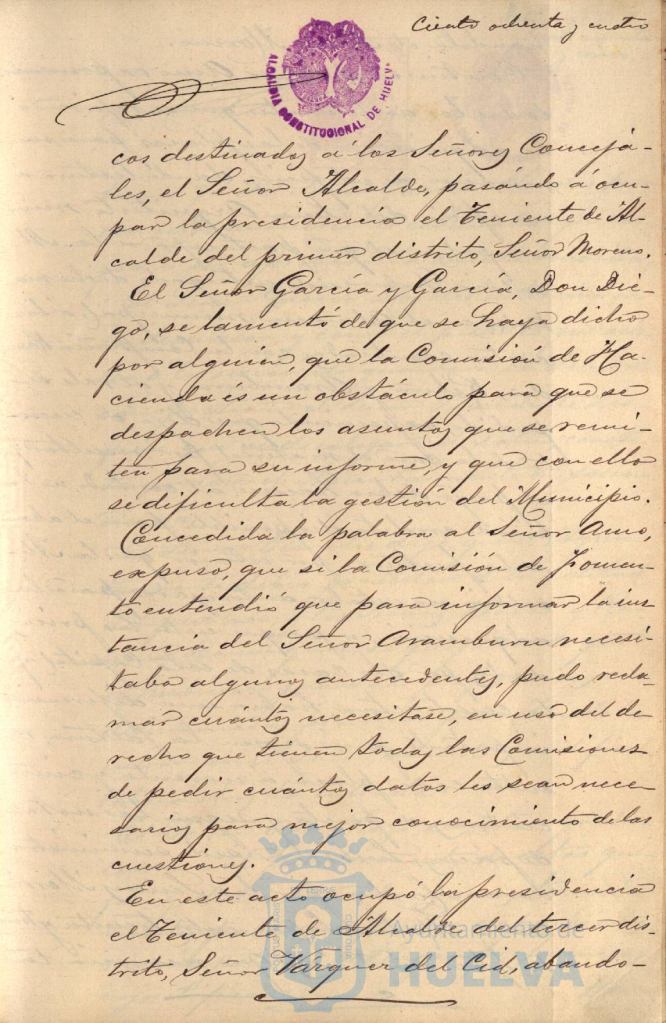 Ciento ochenta y cuatro
ALCALDIA CONSTITUCIONAL DE HUELVA
cos destinados á los Señores Concejá-
les, el Señor Alcalde, pasándo á ocu-
par la presidencia el Teniente de Al-
calde del primer distrito, Señor Moreno.
El Señor García y García, Don Die-
go, se lamentó de que se haya dicho
por alguien, que la Comisión de Ha-
cienda és un obstáculo para que se
despachen los asuntos que se remi-
ten para su informe, y que con ello
se dificulta la gestión del Municipio.
Concedida la palabra al Señor Amo,
expuso, que si la Comisión de Fomen-
to entendió que para informar la ins-
tancia del Señor Aramburu necesi-
taba algunos antecedentes, pudo recla-
mar cuántos necesitase, en uso del de
recho que tienen todas las Comisiones
de pedir cuántos datos les sean nece-
sarios para mejor conocimiento de las
cuestiones.
En este acto ocupó la presidencia
el Teniente de Alcalde del tercer dis-
trito, Señor Vázquez del Cid, abando-
Ayuntamiento de
HUELVA